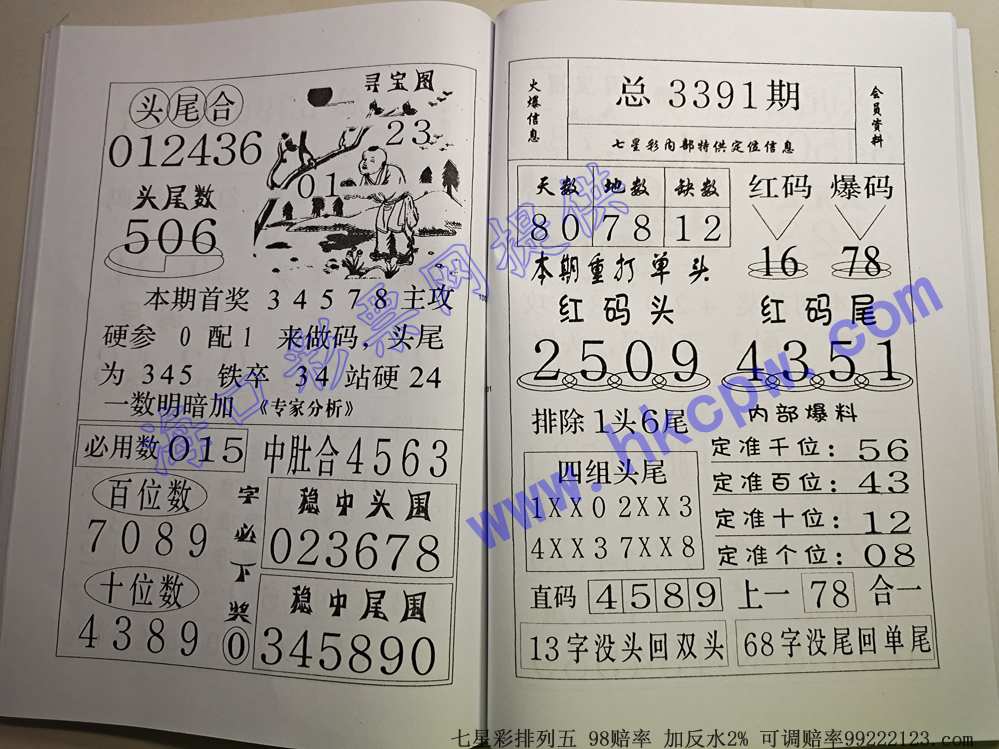 头尾合
寻宝图
012436
23
01
头尾数
506
本期首奖 3 4 5 7 8 主攻
硬参 0 配 1 来做码，头尾
为 345 铁卒 34 站硬 24
一数明暗加 《专家分析》
必用数 015
中肚合4563
百位数
7089
字必下奖
0
稳中头围
023678
十位数
4389
稳中尾围
345890
火爆信息
总 3391期
会员资料
七星彩内部特供定位信息
天数 地数 缺数
80 78 12
红码 爆码
16 78
本期重打单头
红码头
2509
红码尾
4351
排除1头6尾
内部爆料
四组头尾
1XX0 2XX3
4XX3 7XX8
定准千位：56
定准百位：43
定准十位：12
定准个位：08
直码 4589 上一 78 合一
13字没头回双头
68字没尾回单尾
海口彩票网提供
www.hkcpw.com
七星彩排列五 98赔率 加反水2% 可调赔率99222123.com